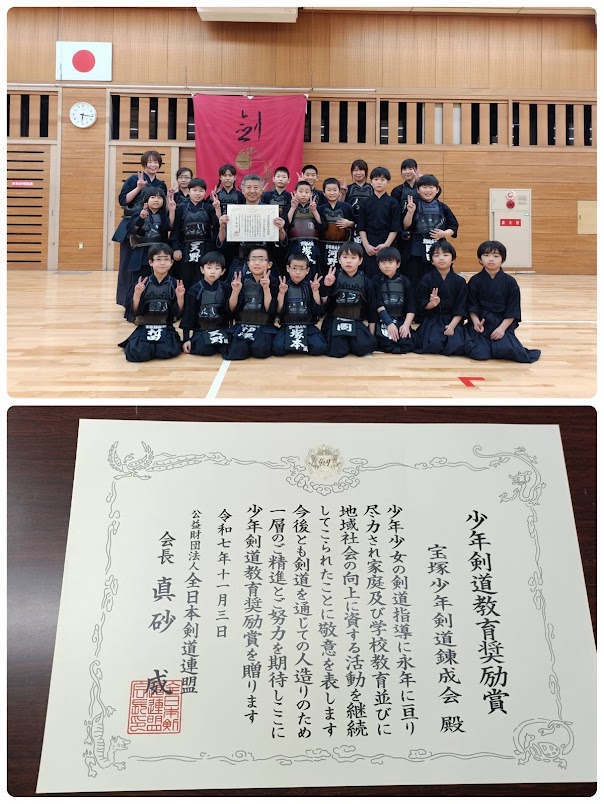 剣
天野
塚本
河野
村田
天野
塚本
岡
少年剣道教育奨励賞
宝塚少年剣道錬成会 殿
少年少女の剣道指導に永年に亘り
尽力され家庭及び学校教育並びに
地域社会の向上に資する活動を継続
してこられたことに敬意を表します
今後とも剣道を通じての人造りのため
一層のご精進とご努力を期待しここに
少年剣道教育奨励賞を贈ります
令和七年十一月三日
公益財団法人 全日本剣道連盟
会長 真砂 威